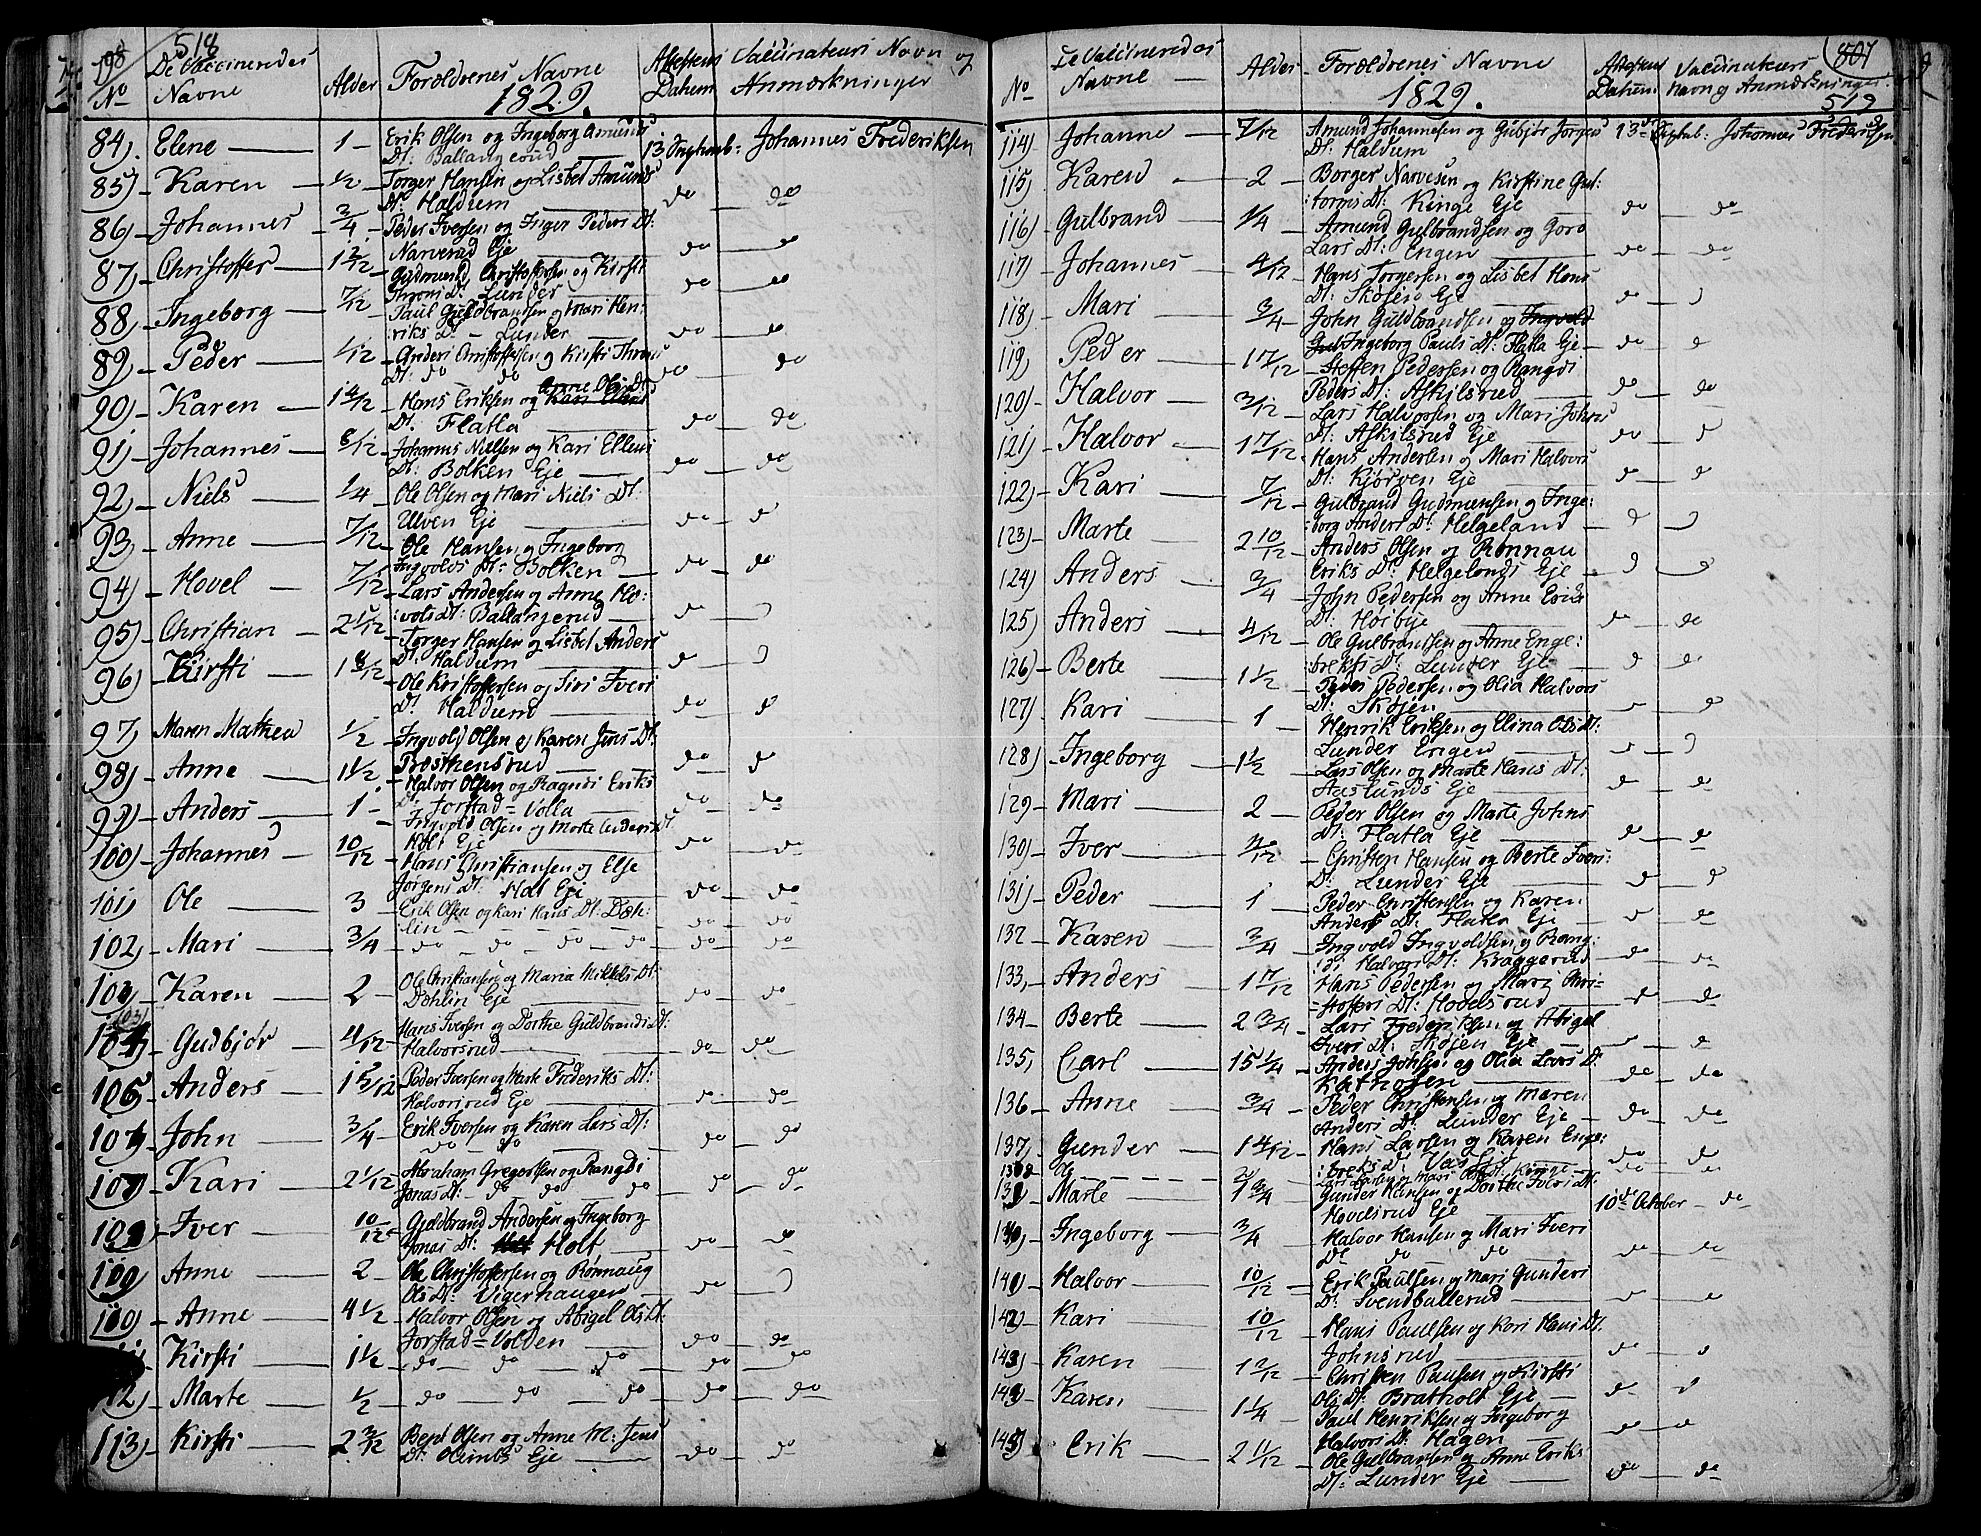 198 518
De Vaccineredes Navne
No
Alder
Forældrenes Navne
1829.
Attestens Datum
Vaccinateurs Navn og Anmærkninger
84) Elene 1 Erik Olsen og Ingeborg Amunds
Dt: Ballangerud 13 Septemb: Johannes Frederiksen
85) Karen 1/2 Torger Hansen og Lisbet Amunds
Dt: Haldum do do
86) Johannes 3/4 Peder Iversen og Inger Peders Dt:
Narverud Eje do do
87) Christoffer Gudmund Christoffersen og Kirsti
Dt: Lunder do do
88) Ingeborg 7/12 Paul Guldbrandsen og Mari Hen:
riks Dt. Lunder do do
89) Peder Anders Christoffersen og Kirsti
Dt: do do do do
90) Karen Hans Eriksen og Anne Ols Dt
Dt: Flatla do do
91) Johannes 6/12 Johannes Nielsen og Kari Ellens
Dt: Bolken Eje do do
92) Niels 1/4 Ole Olsen og Mari Niels Dt.
Ulven Eje do d
93) Anne 7/12 Ole Hansen og Ingeborg
Ingvolds Dt: Bolken do do
94) Hovel 7/12 Lars Andersen og Anne Ho:
:vels Dt: Ballangerud do
95) Christian 2 5/12 Torger Hansen og Lisbet Anders
Dt. Haldum do
96) Kirsti 1 8/12 Ole Kristoffersen og Siri Ivers
Dt. Haldum do d
97) Maren Mathea 1/2 Ingvold Olsen og Karen Jens Dt.
Prosthensrud do d
98) Anne 1 1/2 Halvor Olsen og Ragndi Eriks
Dt. Jorstad=Volla do do
99) Anders 1 Ingvold Olsen og Marte Anders Dt.
Holt Eje do do
100) Johannes 10/12 Hans Christiansen og Else
Jørgens Dt: Holt Eje do do
101) Ole 3 Erik Olsen og Kari Hans Dt: Dæh:
lin do do
102) Mari 3/4 do do do do do do
103) Karen 2 Ole Christiansen og Maria Mikkels Dt:
Dæhlin Eje do do
Gudbjør 4/12 Hans Iversen og Dorthe Guldbrands Dt:
Halvorsrud do do
Anders Peder Iversen og Marte Frederiks Dt:
Halvorsrud Eje do do
John 3/4 Erik Iversen og Karen Lars Dt:
do do do do
Kari 2 1/12 Abraham Gregersen og Rangdi
Jonas Dt: do do do do do
Iver 10/12 Guldbrand Andersen og Ingeborg
Jonas Dt: Holt do do
Anne 2 Ole Christoffersen og Rønnaug
Ols Dt: Vigerhaugen do
Anne 4 1/2 Halvor Olsen og Abigel Ols Dt:
Jorstad=Volden do do
Kirsti 1 1/2 do do do do do
Marte 1/2 do do do do do
113) Kirsti 2 3/12 Bent Olsen og Anne M: Jens
Dt: Eje do do
807
519
No
De Vaccineredes Navne
Alder
Forældrenes Navne
1829.
Attestens Datum
Vaccinateurs Navn og Anmærkninger
114) Johanne 7/12 Amund Johannesen og Gubjør Jørgens
Dt. Haldum 13de Septemb: Johannes Frederiksen
115) Karen 2 Borger Narvesen og Kirstine Gul:
:torms Dt: Kinge Eje do do
116) Gulbrand 1/4 Amund Gulbrandsen og Goro
Lars Dt: Engen do do
117) Johannes 4/12 Hans Torgersen og Lisbet Hans
Dt: Skøien Eje do
118) Mari 3/4 John Guldbrandsen og Ingvold
Ingeborg Pauls Dt: Flatla Eje do d
119) Peder 1 7/12 Steffen Pedersen og Rangdi
Peders Dt: Askilsrud do do
120) Halvor 3/12 Lars Halvorsen og Mari Johns
Dt: Askilsrud Eje do
121) Halvor 1 7/12 Hans Andersen og Mari Halvors
Dt: Kjørven Eje d d
122) Kari 7/12 Gulbrand Gudmunsen og Inge:
:borg Anders Dt: Helgeland d
123) Marte 2 10/12 Anders Olsen og Rønnau
Eriks Dt: Helgelands Eje d
124) Anders 3/4 John Pedersen og Anne Evens
Dt: Høibye do do
125) Anders 4/12 Ole Gulbrandsen og Anne Enge:
:breks Dt: Lunder Eje d do
126) Berte 1 1/2 Peder Pedersen og Olia Halvors
Dt. Skøien do
127) Kari 1 Henrik Eriksen og Elina Ols Dt:
Lunder Engen
128) Ingeborg 1 1/2 Lars Olsen og Marte Hans Dt:
Aaslunds Eje do do
129) Mari 2 Peder Olsen og Marte Johns
Dt: Flatla Eje do do
130) Iver Christen Hansen og Berte Ivers:
Dt: Lunder Eje do d
131) Peder 1 Peder Christensen og Karen
Anders Dt: Flatla Eje do
132 Karen 3/4 Ingvold Ingvoldsen og Rang:
:di Halvors Dt: Kraggerud do do
133, Anders 1 7/12 Hans Pedersen og Mari Chri-
stoffers Dt: Hovelsrud do do
134 Berte 2 3/4 Lars Frederiksen og Abigel
Ivers Dt: Skøjen Eje do do
135, Carl 15 1/4 Anders Johnsen og Olia Lars Dt
do do
136 Anne 3/4 Peder Christensen og Maren
Anders Dt. Lunder Eje do do
137) Gunder 1 4/12 Hans Larsen og Karen Enge:
:breks Dt: do do
138 Og
Marte 1 3/4 Gunder Hansen og Dorthe Ivers Dt:
Hovelsrud Eje 10de October do
Ingeborg 3/4 Halvor Hansen og Mari Ivers
Dt do do do do
Halvor 10/12 Erik Paulsen og Mari Gunders
Dt. Svendballerud do
Kari 10/12 Hans Paulsen og Kari Hans Dt.
Johnsrud do
Karen Christen Paulsen og Kirsti
Ols Dt: Bratholt Eje do d
Karen 1 1/4 Paul Henriksen og Ingeborg
Halvors Dt: Hagen do do
Erik 2 11/12 Ole Gulbransen og Anne Eriks
Dt: Lunder Eje do do